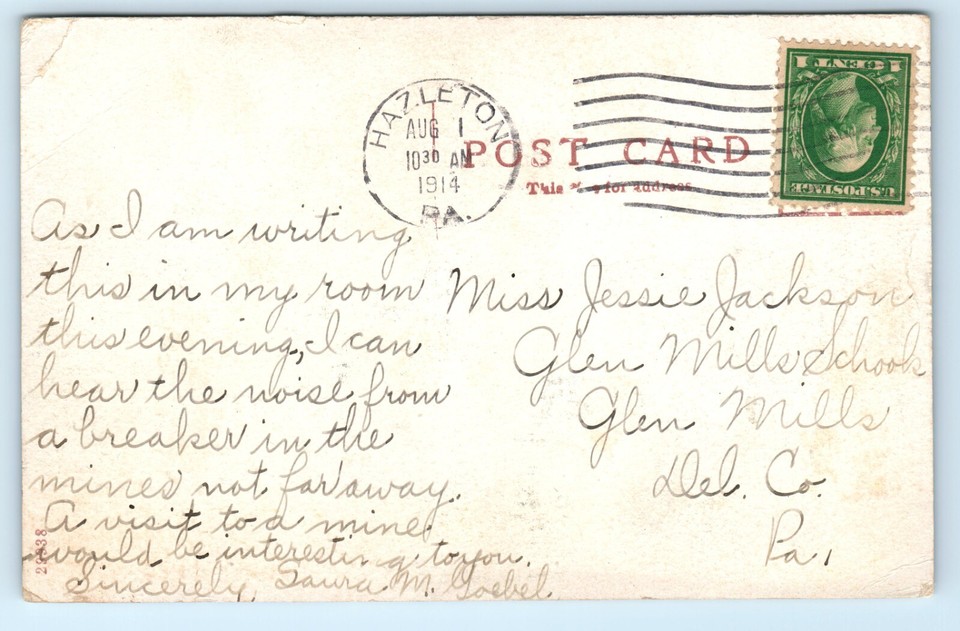 HAZLETON
AUG 1
10 30 AM
1914
PA.
1 CENT 1
U.S. POSTAGE
POST CARD
This for address
As I am writing
this in my room
this evening, I can
hear the noise from
a breaker in the
mines not far away.
A visit to a mine
would be interesting to you.
Sincerely, Laura M. Goebel.
Miss Jessie Jackson
Glen Mills Schools
Glen Mills
Del. Co.
Pa.